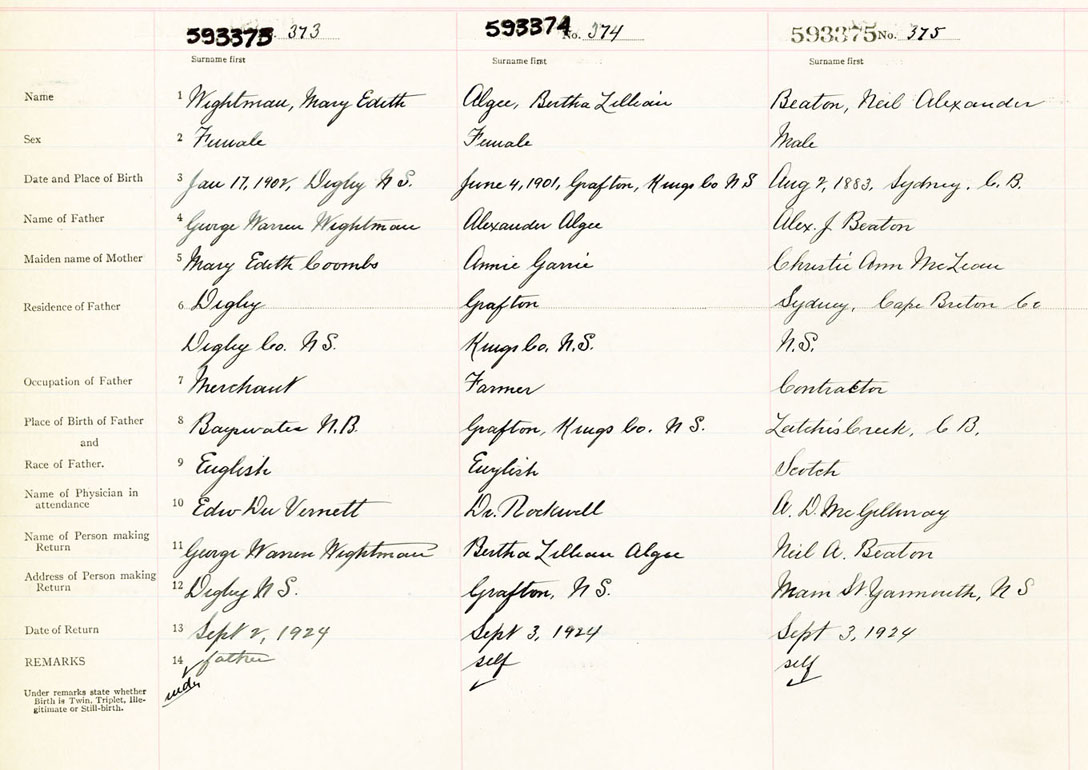 593373 373 593374 No. 374 593375 No. 375
Surname first Surname first Surname first
Name 1 Wightman, Mary Edith Algee, Bertha Lillian Beaton, Neil Alexander
Sex 2 Female Female Male
Date and Place of Birth 3 Jan 17, 1902, Digby N.S. June 4, 1901, Grafton, Kings Co N S Aug 2, 1883, Sydney, C.B.
Name of Father 4 George Warren Wightman Alexander Algee Alex. J Beaton
Maiden name of Mother 5 Mary Edith Coombs Annie Garrie Christie Ann McLean
Residence of Father 6 Digby Grafton Sydney, Cape Breton Co
Digby Co. N S. Kings Co. N.S. N.S.
Occupation of Father 7 Merchant Farmer Contractor
Place of Birth of Father 8 N.B. Grafton, Kings Co. N S. Creek, C B.
and
Race of Father. 9 English English Scotch
Name of Physician in
attendance 10 Edw Du Vernett Dr. Rockwell D. McGillivray
Name of Person making
Return 11 George Warren Wightman Bertha Lillian Algee Neil A. Beaton
Address of Person making
Return 12 Digby N S. Grafton, N S. Main St Yarmouth, N S
Date of Return 13 Sept 2, 1924 Sept 3, 1924 Sept 3, 1924
REMARKS 14 father self self
Under remarks state whether
Birth is Twin, Triplet, Ille-
gitimate or Still-birth.